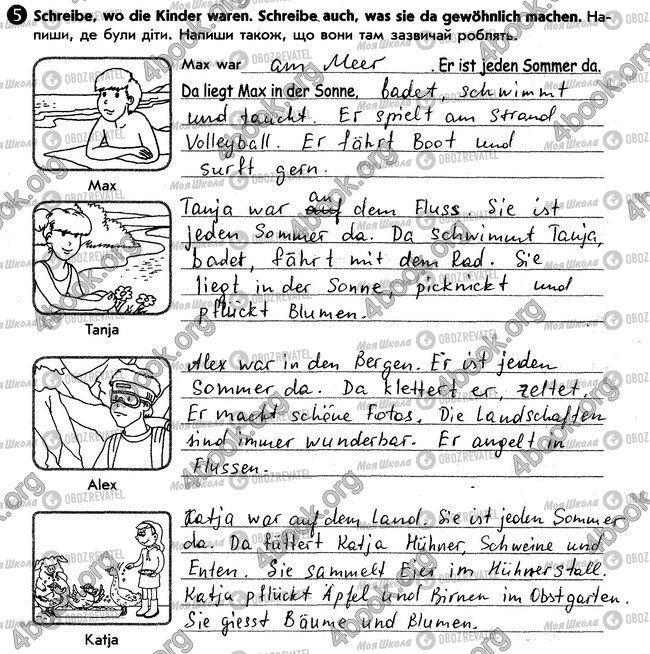 5 Schreibe, wo die Kinder waren. Schreibe auch, was sie da gewöhnlich machen. На-
пиши, де були діти. Напиши також, що вони там зазвичай роблять.
Max war am Meer. Er ist jeden Sommer da.
Da liegt Max in der Sonne, badet, schwimmt
und taucht. Er spielt am Strand
Volleyball. Er fährt Boot und
surft gern.
Max
an
Tanja war auf dem Fluss. Sie ist
jeden Sommer da. Da schwimmt Tanja,
badet, fährt mit dem Rad. Sie
liegt in der Sonne, picknickt und
pflückt Blumen.
Tanja
Alex war in den Bergen. Er ist jeden
Sommer da. Da klettert er, zeltet.
Er macht schöne Fotos. Die Landschaften
sind immer wunderbar. Er angelt in
Flussen.
Alex
Katja war auf dem Land. Sie ist jeden Sommer
da. Da füttert Katja Hühner, Schweine und
Enten. Sie sammelt Eier im Hühnerstall.
Katja pflückt Äpfel und Birnen im Obstgarten.
Sie giesst Bäume und Blumen.
Katja
4book.org
Моя Школа
OBOZREVATEL